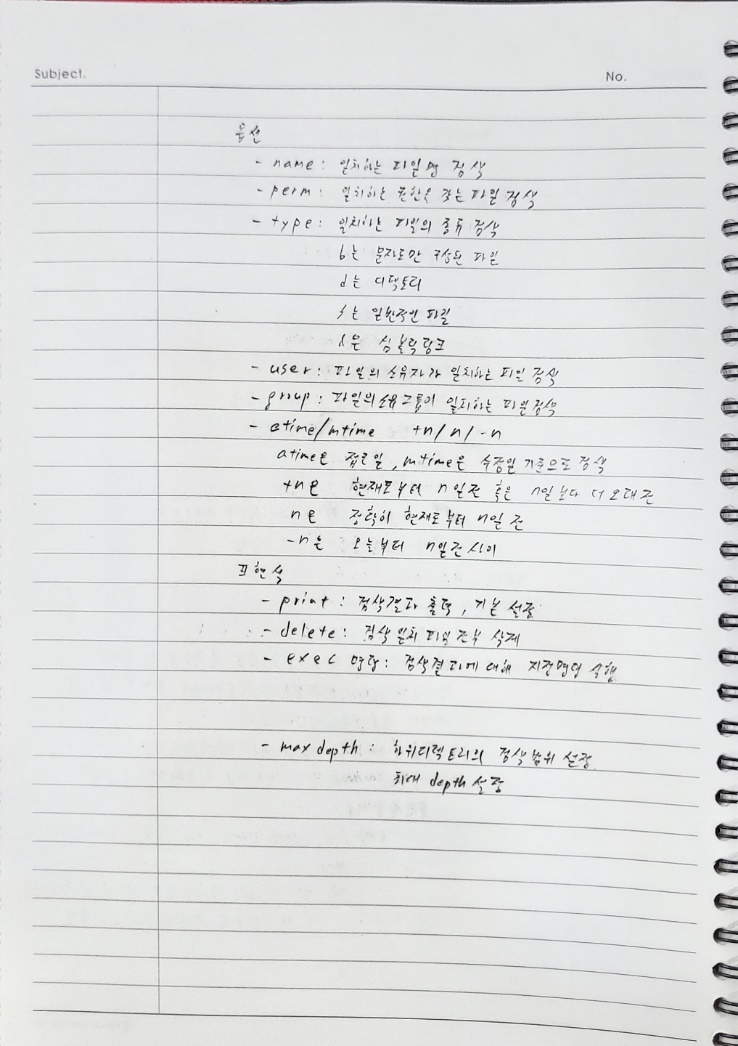 Subject.
No.
옵션
- name : 일치하는 파일명 검색
- perm : 일치하는 권한을 갖는 파일 검색
- type : 일치하는 파일의 종류 검색
b는 문자로만 구성된 파일
d는 디렉토리
f는 일반적인 파일
l은 심볼릭링크
- user : 파일의 소유자가 일치하는 파일 검색
- group : 파일의 소유그룹이 일치하는 파일 검색
- atime/mtime +n/n/-n
atime은 접근일, mtime은 수정일 기준으로 검색
+n은 현재로부터 n일 전 혹은 n일보다 더 오래 전
n은 정확히 현재로부터 n일 전
-n은 오늘부터 n일 전 사이
표현식
- print : 검색결과 출력, 기본 설정
- delete : 검색 일치 파일 전부 삭제
- exec 명령 : 검색결과에 대해 지정명령 실행
- max depth : 하위디렉토리의 검색 범위 설정
최대 depth 설정